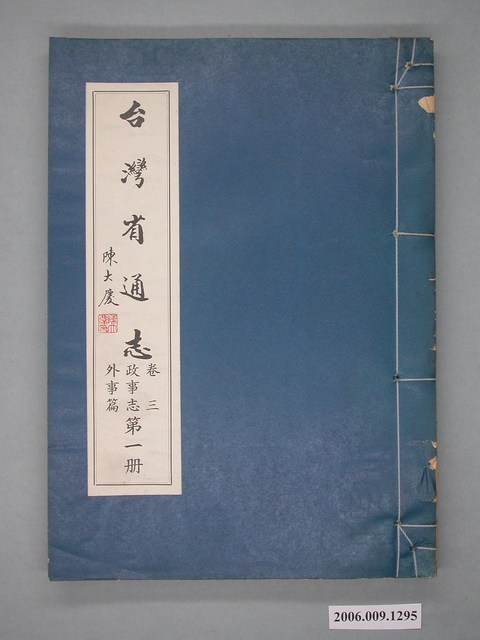 台灣省通志
卷三
政事志
外事篇
第一册
陳大慶
2006.009.1295